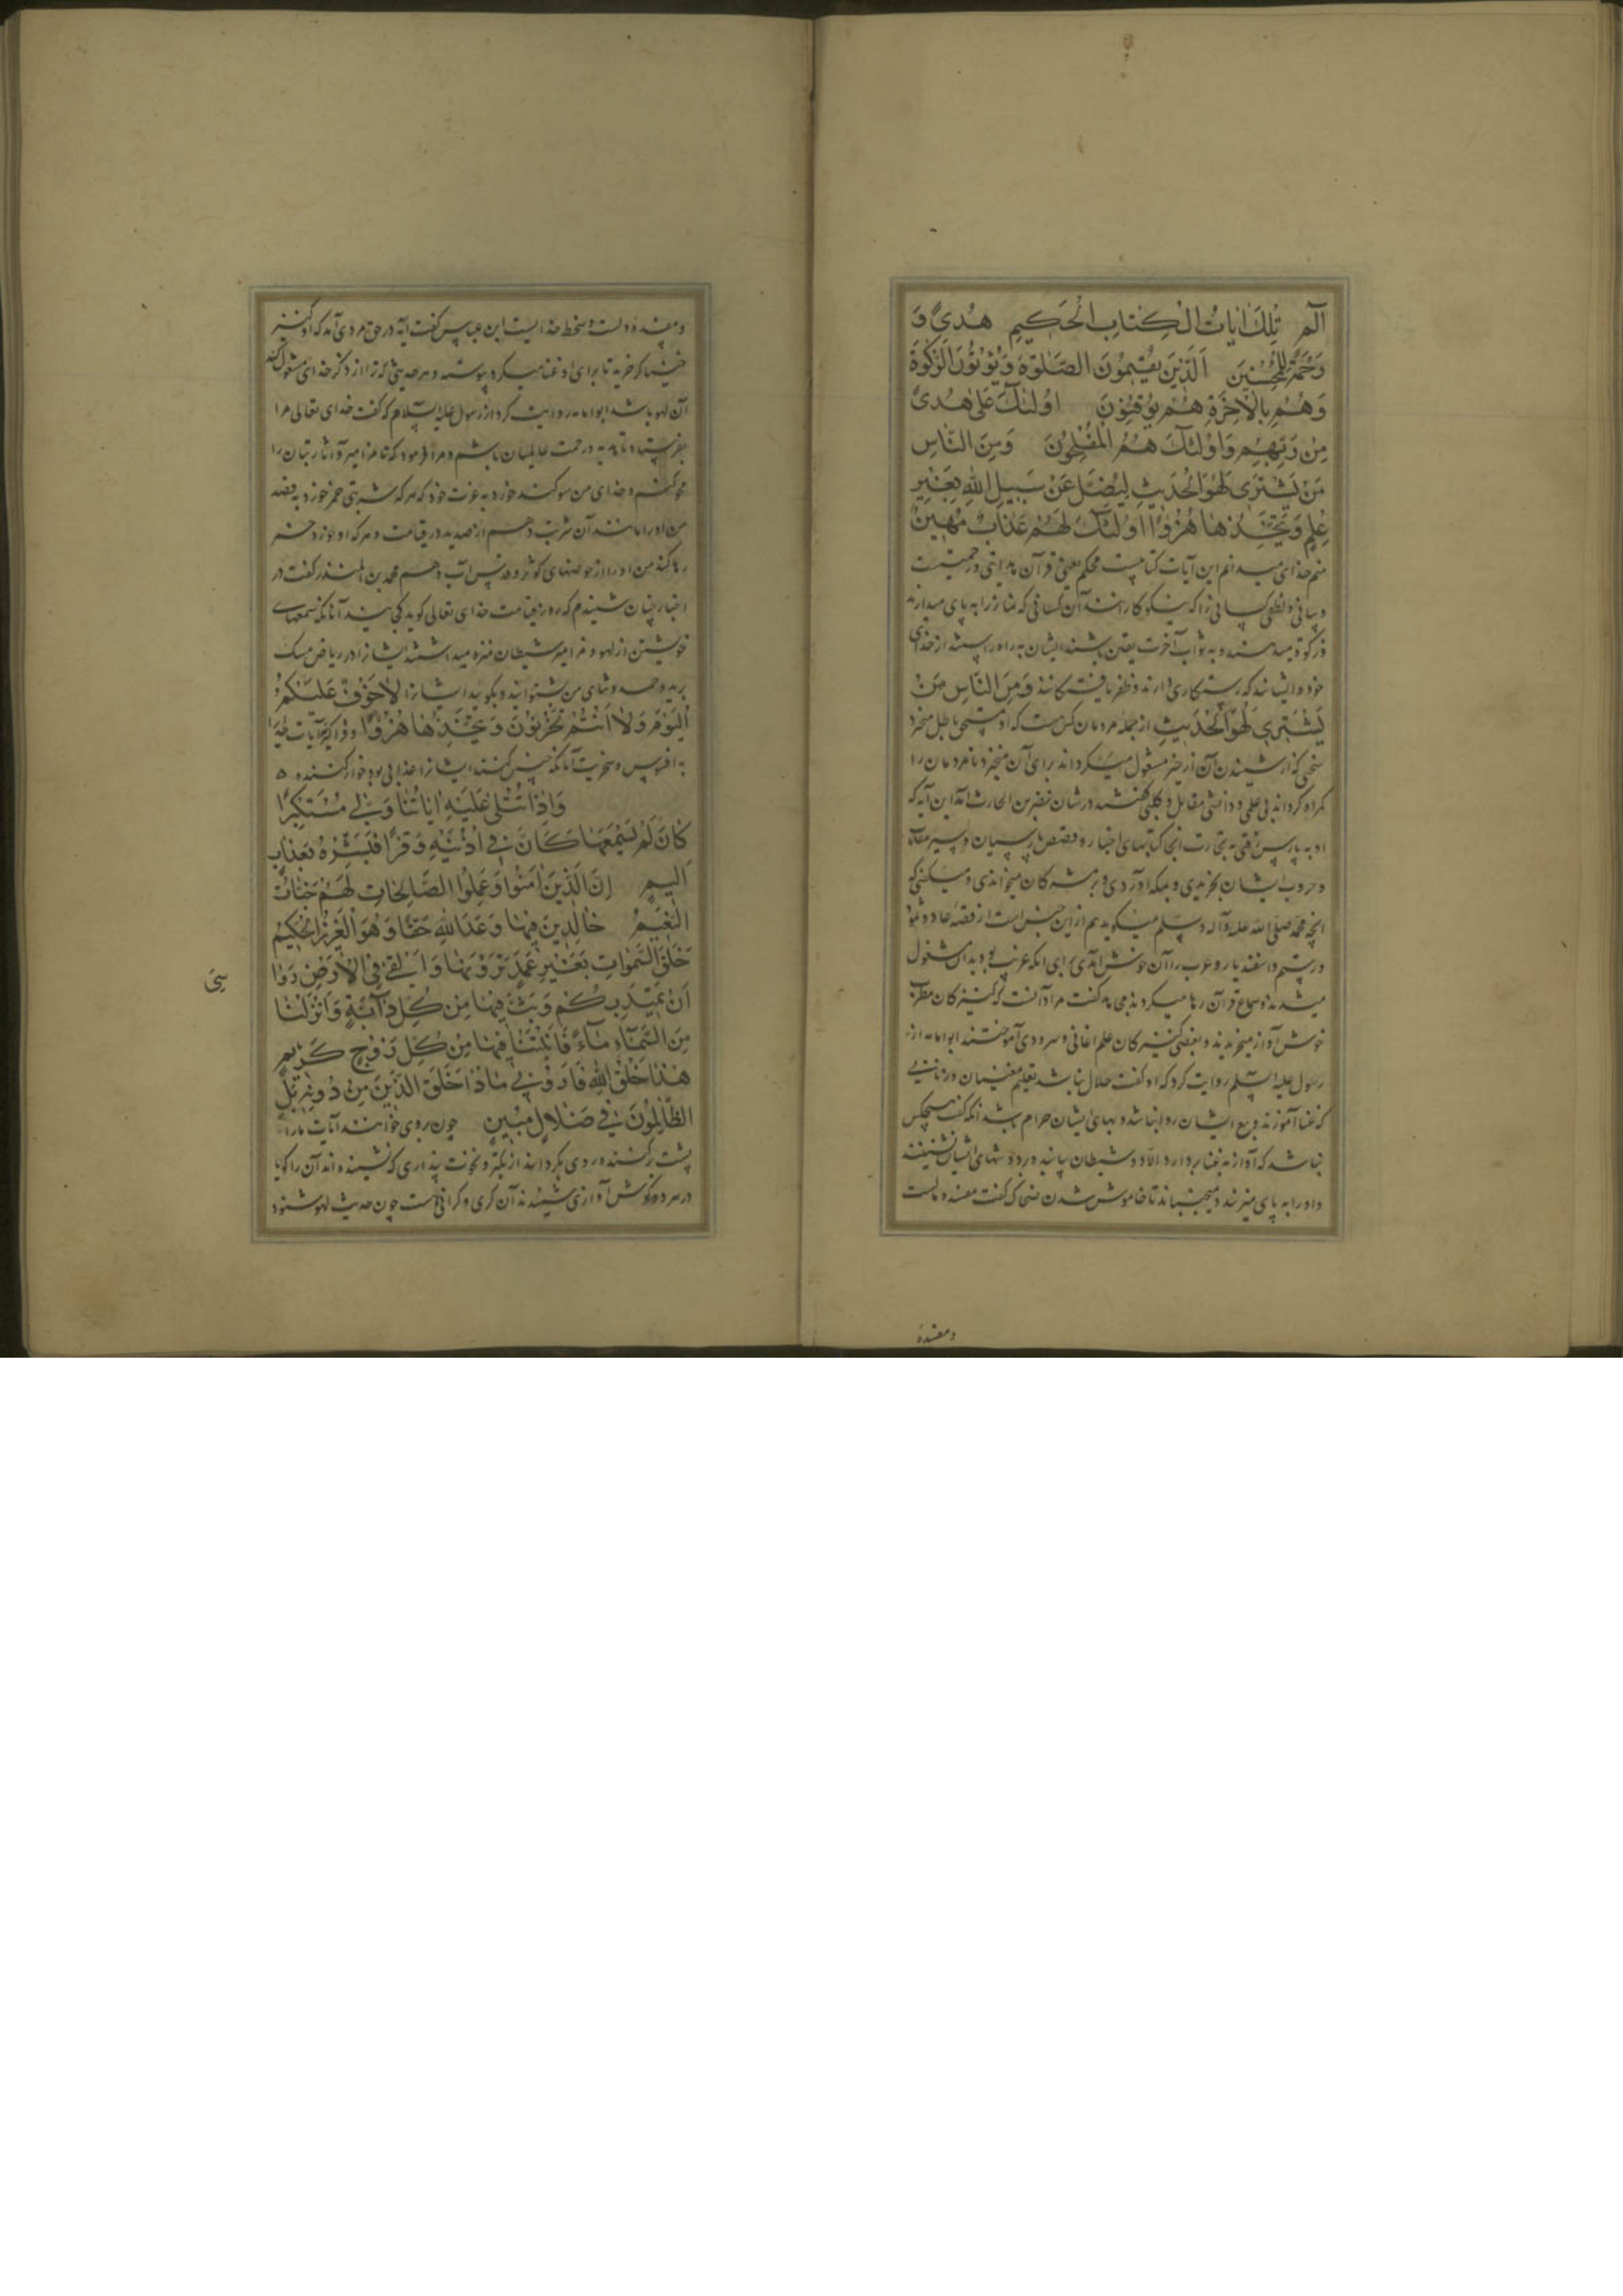 الٓمٓ تِلْكَ اٰيَاتُ الْكِتَابِ الْحَكِيمِ هُدًى وَ
رَحْمَةً لِلْمُحْسِنِينَ اَلَّذِينَ يُقِيمُونَ الصَّلٰوةَ وَيُؤْتُونَ الزَّكٰوةَ
وَهُمْ بِالْاٰخِرَةِ هُمْ يُوقِنُونَ اُولٰئِكَ عَلٰى هُدًى
مِنْ رَبِّهِمْ وَاُولٰئِكَ هُمُ الْمُفْلِحُونَ وَمِنَ النَّاسِ
مَنْ يَشْتَرِي لَهْوَ الْحَدِيثِ لِيُضِلَّ عَنْ سَبِيلِ اللّٰهِ بِغَيْرِ
عِلْمٍ وَيَتَّخِذَهَا هُزُوًا اُولٰئِكَ لَهُمْ عَذَابٌ مُهِينٌ
منم خدای میدانم این آیات کتابیست محکم یعنی قرآن
کسانی را که نیکو کارانند آن کسانی که نماز را به پای میدارند
و زکوة میدهند و به ثواب آخرت یقین باشند ایشان به راه راستند از خدای
خود و ایشانند که رستکاری دارند و ظفر یافتکانند وَمِنَ النَّاسِ مَنْ
يَشْتَرِي لَهْوَ الْحَدِيثِ از جمله مردمان کس است که او باطل میخرد
که از شنیدن آن از خیر مشغول میکرداند برای آن میخرد تا مردمان را
کمراه کرداند بی علمی و دانشی مقاتل و کلبی کفتند در شان نضر بن الحارث آمد این آیه که
او به پارس رفتی به تجارت آنجا کتابهای اخبار و قصص پارسیان
و حروب ایشان بخریدی و بمکه آوردی و بر مشرکان میخواندی و میکفتی که
آنچه محمد صلی الله علیه وآله وسلم میکوید هم از این جنس است از قصه عاد و ثمود
و رستم و اسفندیار و عرب را آن خوش آمدی برای آنکه غریب بود بدان مشغول
میشدند و سماع قرآن رها میکردند کفت مراد آنست که کنیزکان مطرب
خوش آواز میخریدند و بعضی کنیزکان علم اغانی و سرود می آموختند ابو امامه از
رسول علیه السلم روایت کرد که او کفت حلال نباشد تعلیم مغنیان
که غنا آموزند و بیع ایشان روا نباشد و بهای ایشان حرام باشد آنکه کفت هیچکس
نباشد که آواز به غنا بردارد الا دو شیطان بیایند و بر دوشهای ایشان نشینند
و او را به پای میزنند و میجنبانند تا خاموش شدن ضحاک کفت مفسده مالست
و مفسده
و مفسده دلست و سخط خدایست ابن عباس کفت آیه در حق مردی آمد که او کنیزکی
خنیاکر خرید تا برای او غنا میکرد پیوسته و هر حدیثی که ترا از ذکر خدای مشغول کند
آن لهو باشد ابو امامه روایت کرد از رسول علیه السلام که کفت خدای تعالی مرا
بفرستاد تا هدی و رحمت عالمیان باشم و مرا فرمود که تا مزامیر و اوتار و بتان را
محو کنم و خدای من سوکند خورد به عزت خود که هر که شربتی خمر خورد به قصد
من او را مانند آن شربت دهم از صدید در قیامت و هر که او از خمر
رها کند من او را از حوضهای کوثر و قدس آب دهم محمد بن المنکدر کفت در
اخبار چنان شنیدم که روز قیامت خدای تعالی کوید کجایند آنانکه سمعهای
خویشتن از لهو و مزامیر شیطان منزه میداشتند ایشانرا در ریاض مشک
برید و حمد و ثنای من شنوانید و بکویید ایشانرا لَاخَوْفٌ عَلَيْكُمُ
الْيَوْمَ وَلَا اَنْتُمْ تَحْزَنُونَ وَيَتَّخِذَهَا هُزُوًا
به افسوس و سخریت آنانکه چنین کنند ایشانرا عذابی بود خوارکننده
وَاِذَا تُتْلٰى عَلَيْهِ اٰيَاتُنَا وَلّٰى مُسْتَكْبِرًا
كَاَنْ لَمْ يَسْمَعْهَا كَاَنَّ فِي اُذُنَيْهِ وَقْرًا فَبَشِّرْهُ بِعَذَابٍ
اَلِيمٍ اِنَّ الَّذِينَ اٰمَنُوا وَعَمِلُوا الصَّالِحَاتِ لَهُمْ جَنَّاتُ
النَّعِيمُ خَالِدِينَ فِيهَا وَعْدَ اللّٰهِ حَقًّا وَهُوَ الْعَزِيزُ الْحَكِيمُ
خَلَقَ السَّمٰوَاتِ بِغَيْرِ عَمَدٍ تَرَوْنَهَا وَاَلْقٰى فِي الْاَرْضِ رَوَا
سِيَ
اَنْ تَمِيدَ بِكُمْ وَبَثَّ فِيهَا مِنْ كُلِّ دَآبَّةٍ وَاَنْزَلْنَا
مِنَ السَّمَآءِ مَآءً فَاَنْبَتْنَا فِيهَا مِنْ كُلِّ زَوْجٍ كَرِيمٍ
هٰذَا خَلْقُ اللّٰهِ فَاَرُونِي مَاذَا خَلَقَ الَّذِينَ مِنْ دُونِهِ بَلِ
الظَّالِمُونَ فِي ضَلَالٍ مُبِينٍ چون بر وی خوانند آیات ما را
پشت برکند و روی بکرداند از تکبر و نخوت پنداری که نشنیده اند آن را کویا
در هر دو کوش آوازی شنیدند آن کری و کرانی است چون حدیث لهو شنود